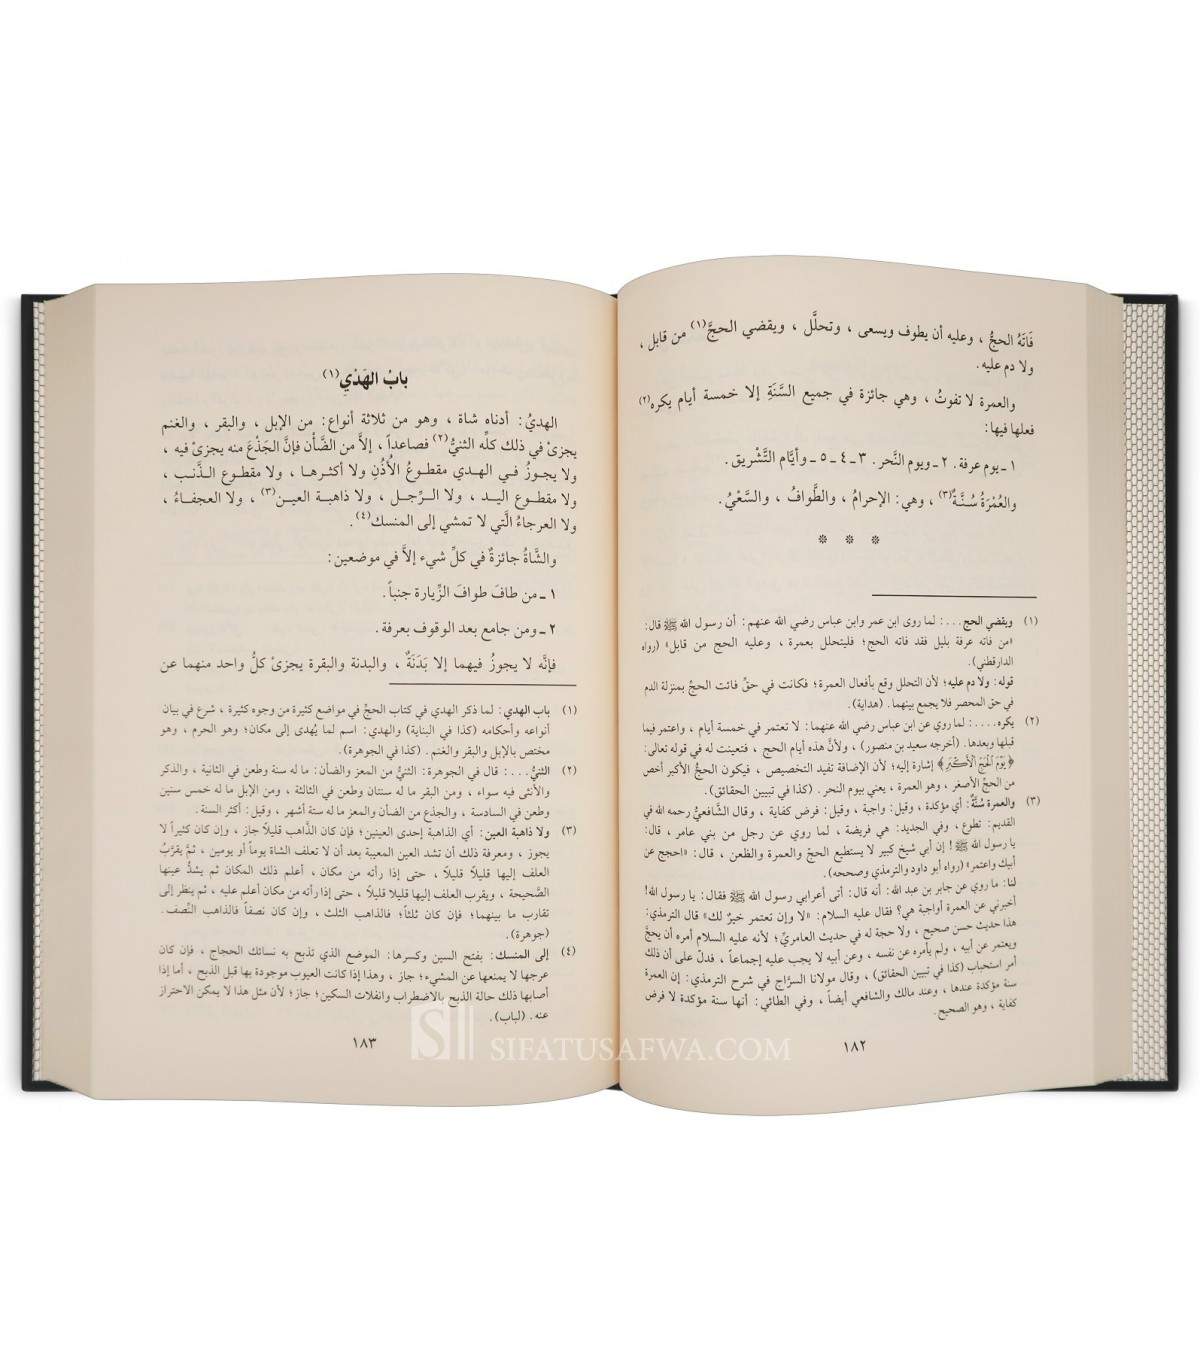 فَاتَهُ الحجُّ ، وعليه أن يطوف ويسعى ، وتحلَّل ، ويقضي الحجَّ(١) من قابل ،
ولا دم عليه.
والعمرة لا تفوتُ ، وهي جائزة في جميع السَّنَةِ إلا خمسة أيام يكره(٢)
فعلها فيها:
١ ـ يوم عرفة. ٢ ـ ويوم النَّحر. ٣ ـ ٤ ـ ٥ ـ وأيَّام التَّشريق.
والعُمْرَةُ سُنَّةٌ(٣) ، وهي: الإحرامُ ، والطَّوافُ ، والسَّعْيُ.
* * *
(١) ويقضي الحج...: لما روى ابن عمر وابن عباس رضي الله عنهم: أن رسول الله ﷺ قال:
«من فاته عرفة بليل فقد فاته الحج؛ فليتحلل بعمرة ، وعليه الحج من قابل» (رواه
الدارقطني).
قوله: ولا دم عليه؛ لأن التحلل وقع بأفعال العمرة؛ فكانت في حقِّ فائت الحجّ بمنزلة الدم
في حق المحصر فلا يجمع بينهما. (هداية).
(٢) يكره....: لما روي عن ابن عباس رضي الله عنهما: لا تعتمر في خمسة أيام ، واعتمر فيما
قبلها وبعدها. (أخرجه سعيد بن منصور) ، ولأنَّ هذه أيام الحج ، فتعينت له في قوله تعالى:
﴿يَوْمَ الْحَجِّ الْأَكْبَرِ﴾ إشارة إليه؛ لأن الإضافة تفيد التخصيص ، فيكون الحجُّ الأكبر أخص
من الحجِّ الأصغر ، وهو العمرة ، يعني بيوم النحر. (كذا في تبيين الحقائق).
(٣) والعمرة سُنَّةٌ: أي مؤكدة ، وقيل: واجبة ، وقيل: فرض كفاية ، وقال الشَّافعيُّ رحمه الله في
القديم: تطوع ، وفي الجديد: هي فريضة ، لما روي عن رجل من بني عامر ، قال:
يا رسول الله ﷺ! إن أبي شيخ كبير لا يستطيع الحجّ والعمرة والظعن ، قال: «احجج عن
أبيك واعتمر» (رواه أبو داود والترمذي وصححه).
لنا: ما روي عن جابر بن عبد الله: أنه قال: أتى أعرابي رسول الله ﷺ فقال: يا رسول الله!
أخبرني عن العمرة أواجبة هي؟ فقال عليه السلام: «لا وإن تعتمر خيرٌ لك» قال الترمذي:
هذا حديث حسن صحيح ، ولا حجة له في حديث العامريِّ؛ لأنه عليه السلام أمره أن يحجَّ
ويعتمر عن أبيه ، ولم يأمره عن نفسه ، وعن أبيه لا يجب عليه إجماعاً ، فدلّ على أن ذلك
أمر استحباب (كذا في تبيين الحقائق) ، وقال مولانا السرَّاج في شرح الترمذي: إن العمرة
سنة مؤكدة عندها ، وعند مالك والشافعي أيضاً ، وفي الطائي: أنها سنة مؤكدة لا فرض
كفاية ، وهو الصحيح.
١٨٢
بابُ الهَدْيِ(١)
الهديُ: أدناه شاة ، وهو من ثلاثة أنواع: من الإبل ، والبقر ، والغنم
يجزئ في ذلك كلِّه الثنيُّ(٢) فصاعداً ، إلاَّ من الضَّأْن فإنَّ الجَذْعَ منه يجزئ فيه ،
ولا يجوزُ في الهدي مقطوعُ الأُذُنِ ولا أكثرها ، ولا مقطوع الذَّنب ،
ولا مقطوع اليد ، ولا الرِّجل ، ولا ذاهبة العين(٣) ، ولا العجفاءُ ،
ولا العرجاءُ الَّتي لا تمشي إلى المنسك(٤).
والشَّاةُ جائزةٌ في كلِّ شيء إلاَّ في موضعين:
١ ـ من طافَ طوافَ الزِّيارة جنباً.
٢ ـ ومن جامع بعد الوقوف بعرفة.
فإنَّه لا يجوزُ فيهما إلا بَدَنَةٌ ، والبدنة والبقرة يجزئ كلُّ واحد منهما عن
(١) باب الهدي: لما ذكر الهدي في كتاب الحجِّ في مواضع كثيرة من وجوه كثيرة ، شرع في بيان
أنواعه وأحكامه (كذا في البناية) والهدي: اسم لما يُهدى إلى مكان؛ وهو الحرم ، وهو
مختص بالإبل والبقر والغنم. (كذا في الجوهرة).
(٢) الثنيُّ...: قال في الجوهرة: الثنيُّ من المعز والضأن: ما له سنة وطعن في الثانية ، والذكر
والأنثى فيه سواء ، ومن البقر ما له سنتان وطعن في الثالثة ، ومن الإبل ما له خمس سنين
وطعن في السادسة ، والجذع من الضأن والمعز ما له ستة أشهر ، وقيل: أكثر السنة.
(٣) ولا ذاهبة العين: أي الذاهبة إحدى العينين؛ فإن كان الذَّاهب قليلاً جاز ، وإن كان كثيراً لا
يجوز ، ومعرفة ذلك أن تشد العين المعيبة بعد أن لا تعلف الشاة يوماً أو يومين ، ثمَّ يقرَّبُ
العلف إليها قليلاً قليلاً ، حتى إذا رأته من مكان ، أعلم ذلك المكان ثم يشدُّ عينها
الصَّحيحة ، ويقرب العلف إليها قليلاً قليلاً ، حتى إذا رأته من مكان أعلم عليه ، ثم ينظر إلى
تقارب ما بينهما؛ فإن كان ثلثاً؛ فالذاهب الثلث ، وإن كان نصفاً فالذاهب النِّصف.
(جوهرة).
(٤) إلى المنسك: بفتح السين وكسرها: الموضع الذي تذبح به نسائك الحجاج ، فإن كان
عرجها لا يمنعها عن المشيء؛ جاز ، وهذا إذا كانت العيوب موجودة بها قبل الذبح ، أما إذا
أصابها ذلك حالة الذبح بالاضطراب وانفلات السكين؛ جاز؛ لأن مثل هذا لا يمكن الاحتراز
عنه. (لباب).
١٨٣
SIFATUSAFWA.COM